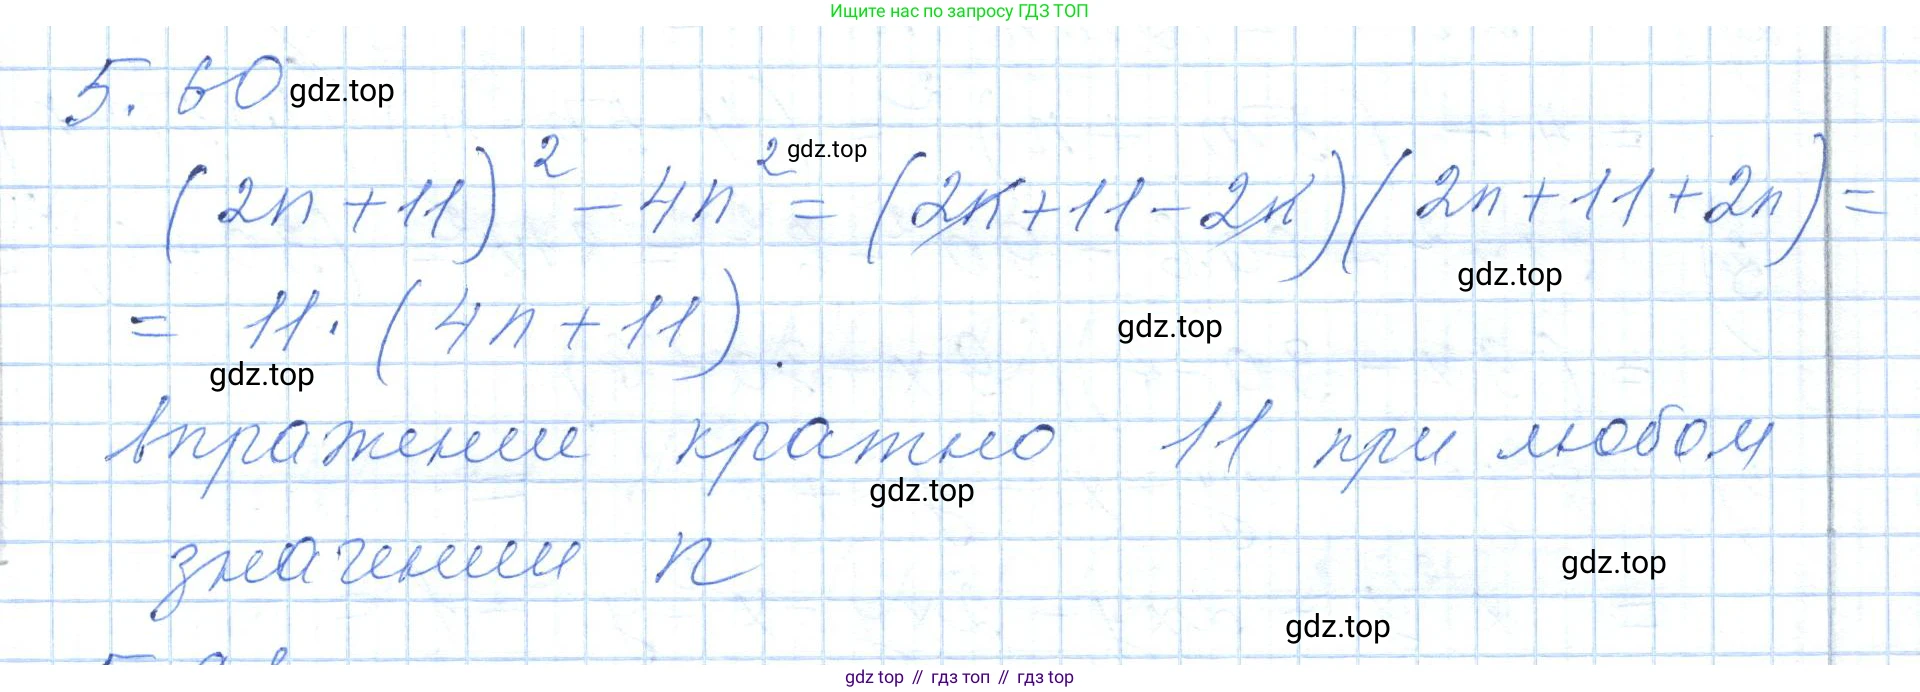 Ищите нас по запросу ГДЗ ТОП
5.60 gdz.top
(2n+11)² - 4n² gdz.top = (2n+11-2n)(2n+11+2n) =
gdz.top
= 11·(4n+11).
gdz.top
gdz.top
впражении кратно 11 при любом
gdz.top
значении n
gdz.top
gdz.top
gdz.top // гдз топ // гдз top